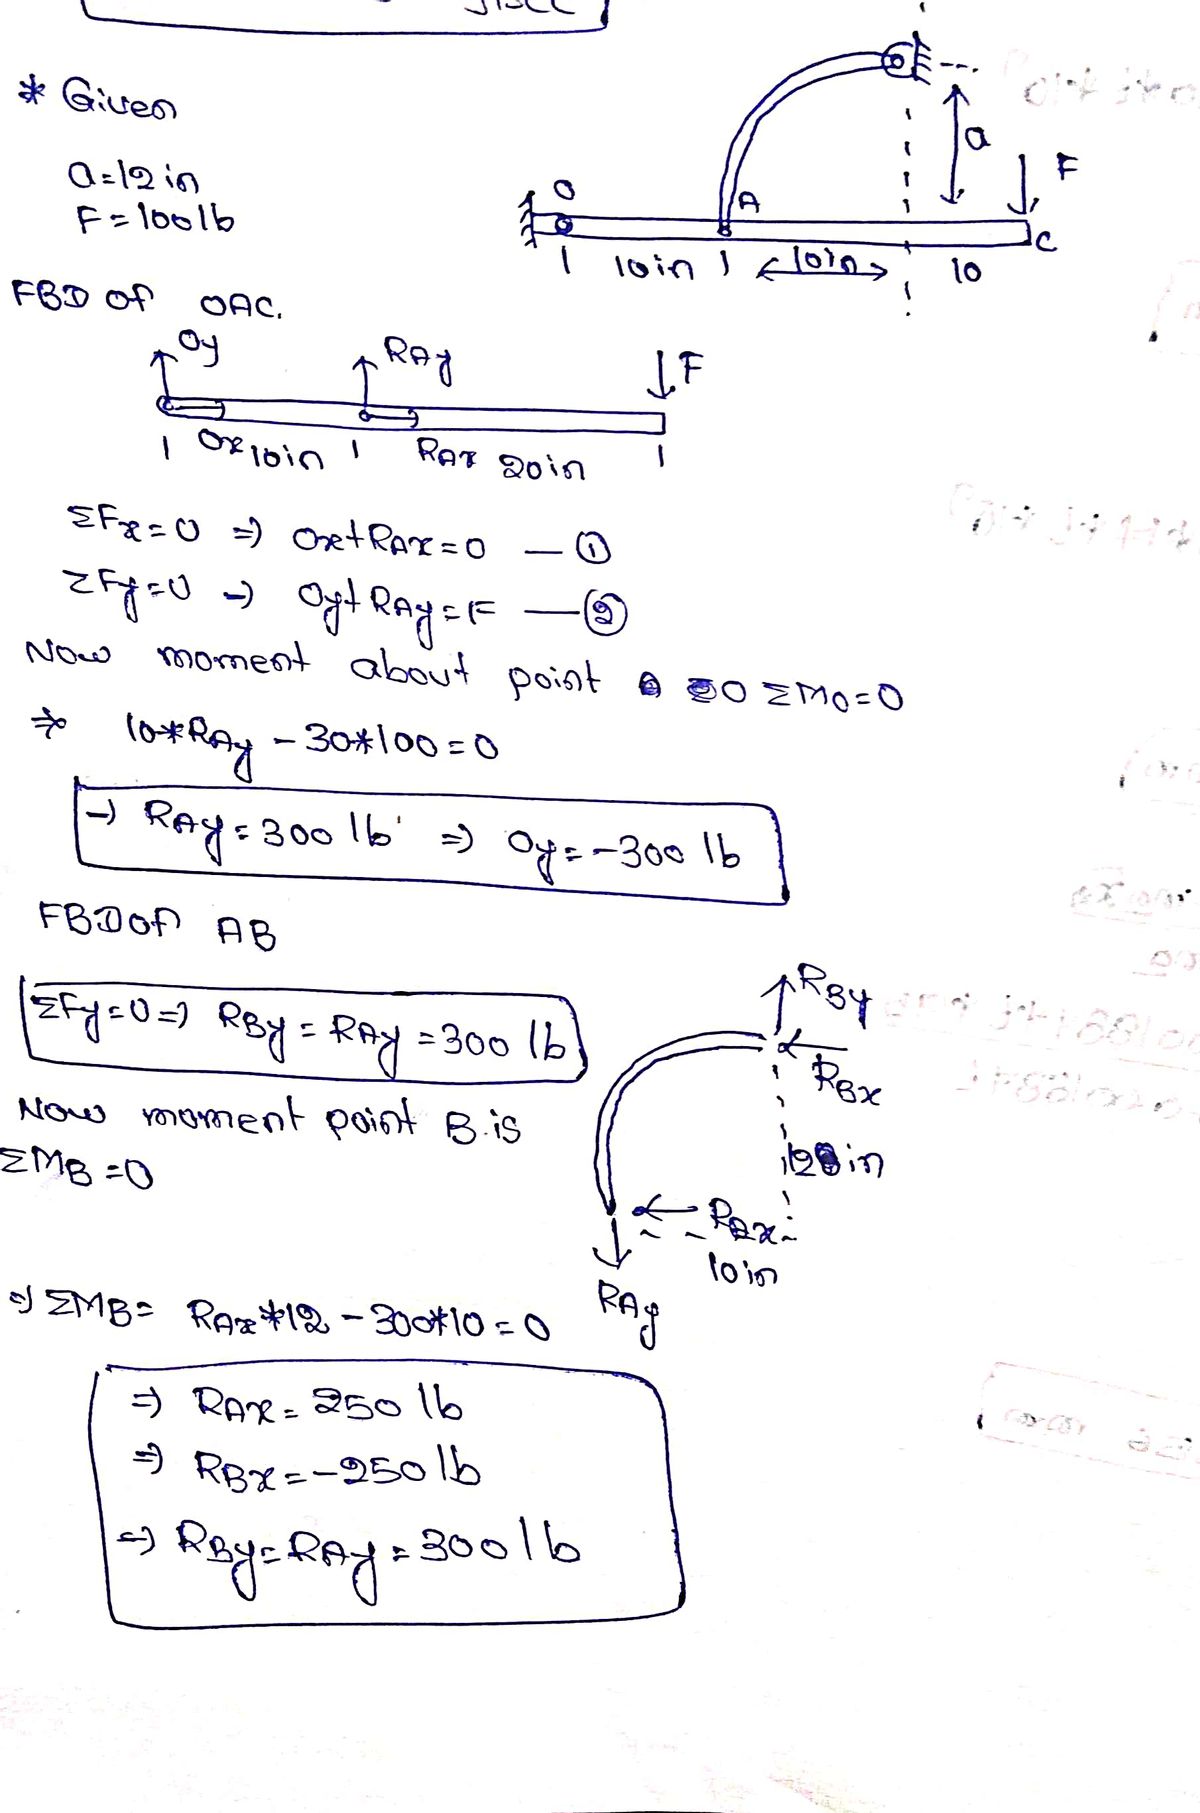 * Given
a=12 in
F=100lb
a
F
O
A
C
10in
10in
10
FBD of OAC.
Oy
RAy
F
Ox 10in
RAx 20in
ΣFx=0 ⇒ Ox+RAx=0 — ①
ΣFy=0 → Oy+RAy=F — ②
Now moment about point O ΣMO=0
⇒ 10*RAy - 30*100=0
→ RAy=300 lb ⇒ Oy=-300 lb
FBD of AB
RBy
ΣFy=0 ⇒ RBy=RAy=300 lb
RBx
Now moment point B is
ΣMB=0
12in
RAx
10in
RAy
⇒ ΣMB= RAx*12-300*10=0
⇒ RAx=250 lb
⇒ RBx=-250 lb
⇒ RBy=RAy=300 lb